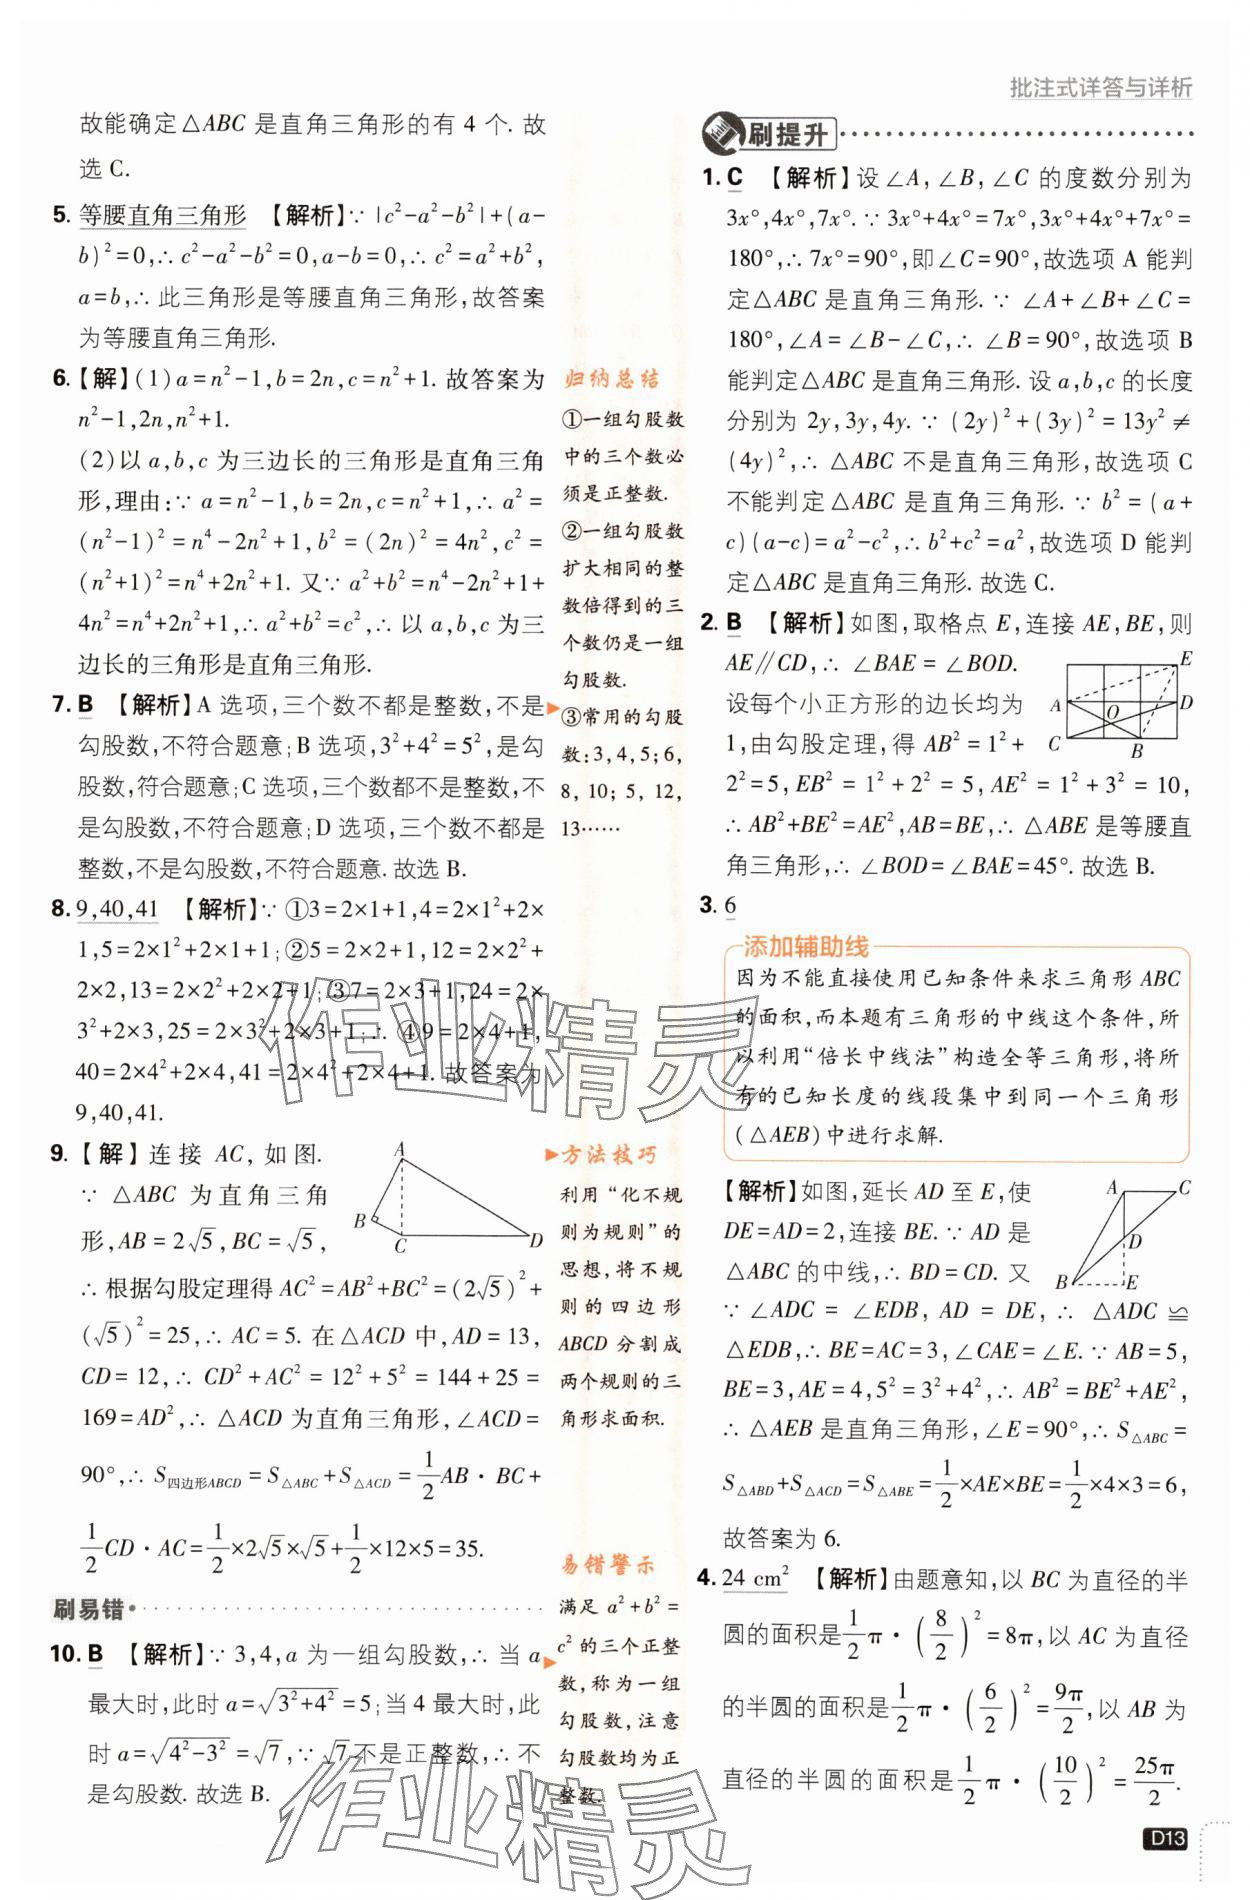 批注式详答与详析
故能确定△ABC 是直角三角形的有 4 个. 故
选 C.
5. 等腰直角三角形 【解析】∵ |c²-a²-b²|+(a-
b)²=0,∴ c²-a²-b²=0,a-b=0,∴ c²=a²+b²,
a=b,∴ 此三角形是等腰直角三角形,故答案
为等腰直角三角形.
6.【解】(1)a=n²-1,b=2n,c=n²+1. 故答案为
n²-1,2n,n²+1.
(2)以 a,b,c 为三边长的三角形是直角三角
形,理由:∵ a=n²-1,b=2n,c=n²+1,∴ a²=
(n²-1)²=n⁴-2n²+1,b²=(2n)²=4n²,c²=
(n²+1)²=n⁴+2n²+1. 又∵ a²+b²=n⁴-2n²+1+
4n²=n⁴+2n²+1,∴ a²+b²=c²,∴ 以 a,b,c 为三
边长的三角形是直角三角形.
7. B 【解析】A 选项,三个数不都是整数,不是
勾股数,不符合题意;B 选项,3²+4²=5²,是勾
股数,符合题意;C 选项,三个数都不是整数,不
是勾股数,不符合题意;D 选项,三个数不都是
整数,不是勾股数,不符合题意. 故选 B.
8. 9,40,41 【解析】∵ ①3=2×1+1,4=2×1²+2×
1,5=2×1²+2×1+1;②5=2×2+1,12=2×2²+
2×2,13=2×2²+2×2+1;③7=2×3+1,24=2×
3²+2×3,25=2×3²+2×3+1;∴ ④9=2×4+1,
40=2×4²+2×4,41=2×4²+2×4+1. 故答案为
9,40,41.
9.【解】连接 AC, 如图.
∵ △ABC 为直角三角
形,AB=2√5,BC=√5,
A
B
C
D
∴ 根据勾股定理得 AC²=AB²+BC²=(2√5)²+
(√5)²=25,∴ AC=5. 在△ACD 中,AD=13,
CD=12,∴ CD²+AC²=12²+5²=144+25=
169=AD²,∴ △ACD 为直角三角形,∠ACD=
90°,∴ S四边形ABCD=S△ABC+S△ACD=1/2AB·BC+
1/2CD·AC=1/2×2√5×√5+1/2×12×5=35.
刷易错
10. B 【解析】∵ 3,4,a 为一组勾股数,∴ 当 a
最大时,此时 a=√(3²+4²)=5;当 4 最大时,此
时 a=√(4²-3²)=√7,∵ √7不是正整数,∴ 不
是勾股数. 故选 B.
归纳总结
①一组勾股数
中的三个数必
须是正整数.
②一组勾股数
扩大相同的整
数倍得到的三
个数仍是一组
勾股数.
③常用的勾股
数:3,4,5;6,
8,10;5,12,
13……
方法技巧
利用“化不规
则为规则”的
思想,将不规
则的四边形
ABCD 分割成
两个规则的三
角形求面积.
易错警示
满足 a²+b²=
c² 的三个正整
数,称为一组
勾股数,注意
勾股数均为正
整数.
刷提升
1. C 【解析】设∠A,∠B,∠C 的度数分别为
3x°,4x°,7x°. ∵ 3x°+4x°=7x°,3x°+4x°+7x°=
180°,∴ 7x°=90°,即∠C=90°,故选项 A 能判
定△ABC 是直角三角形. ∵ ∠A+∠B+∠C=
180°,∠A=∠B-∠C,∴ ∠B=90°,故选项 B
能判定△ABC 是直角三角形. 设 a,b,c 的长度
分别为 2y,3y,4y. ∵ (2y)²+(3y)²=13y²≠
(4y)²,∴ △ABC 不是直角三角形,故选项 C
不能判定△ABC 是直角三角形. ∵ b²=(a+
c)(a-c)=a²-c²,∴ b²+c²=a²,故选项 D 能判
定△ABC 是直角三角形. 故选 C.
2. B 【解析】如图,取格点 E,连接 AE,BE,则
AE∥CD,∴ ∠BAE=∠BOD.
设每个小正方形的边长均为
1,由勾股定理,得 AB²=1²+
E
A
O
D
C
B
2²=5,EB²=1²+2²=5,AE²=1²+3²=10,
∴ AB²+BE²=AE²,AB=BE,∴ △ABE 是等腰直
角三角形,∴ ∠BOD=∠BAE=45°. 故选 B.
3. 6
添加辅助线
因为不能直接使用已知条件来求三角形 ABC
的面积,而本题有三角形的中线这个条件,所
以利用“倍长中线法”构造全等三角形,将所
有的已知长度的线段集中到同一个三角形
(△AEB)中进行求解.
【解析】如图,延长 AD 至 E,使
DE=AD=2,连接 BE. ∵ AD 是
△ABC 的中线,∴ BD=CD. 又
A
C
D
B
E
∵ ∠ADC=∠EDB,AD=DE,∴ △ADC≌
△EDB,∴ BE=AC=3,∠CAE=∠E. ∵ AB=5,
BE=3,AE=4,5²=3²+4²,∴ AB²=BE²+AE²,
∴ △AEB 是直角三角形,∠E=90°,∴ S△ABC=
S△ABD+S△ACD=S△ABE=1/2×AE×BE=1/2×4×3=6,
故答案为 6.
4. 24 cm² 【解析】由题意知,以 BC 为直径的半
圆的面积是1/2π·(8/2)²=8π,以 AC 为直径
的半圆的面积是1/2π·(6/2)²=9π/2,以 AB 为
直径的半圆的面积是1/2π·(10/2)²=25π/2.
D13
作业精灵
作业精灵